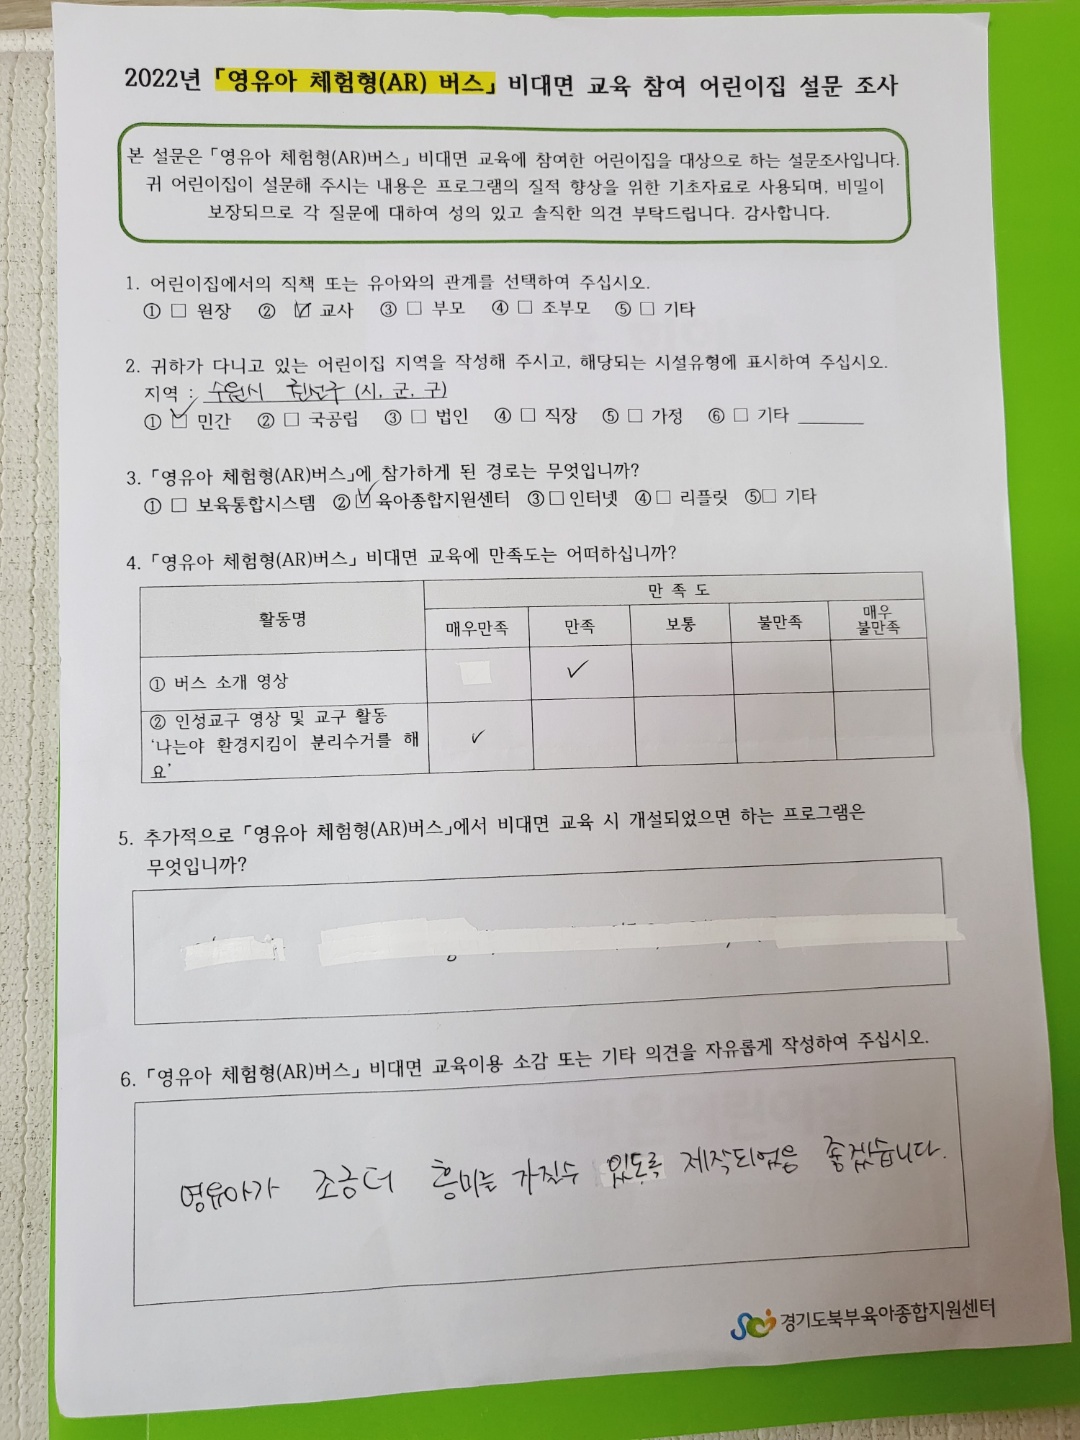 2022년 「영유아 체험형(AR) 버스」 비대면 교육 참여 어린이집 설문 조사
본 설문은 「영유아 체험형(AR)버스」 비대면 교육에 참여한 어린이집을 대상으로 하는 설문조사입니다.
귀 어린이집이 설문해 주시는 내용은 프로그램의 질적 향상을 위한 기초자료로 사용되며, 비밀이
보장되므로 각 질문에 대하여 성의 있고 솔직한 의견 부탁드립니다. 감사합니다.
1. 어린이집에서의 직책 또는 유아와의 관계를 선택하여 주십시오.
① □ 원장 ② ☑ 교사 ③ □ 부모 ④ □ 조부모 ⑤ □ 기타
2. 귀하가 다니고 있는 어린이집 지역을 작성해 주시고, 해당되는 시설유형에 표시하여 주십시오.
지역 : 수원시 권선구 (시, 군, 구)
① ☑ 민간 ② □ 국공립 ③ □ 법인 ④ □ 직장 ⑤ □ 가정 ⑥ □ 기타 ______
3. 「영유아 체험형(AR)버스」에 참가하게 된 경로는 무엇입니까?
① □ 보육통합시스템 ② ☑ 육아종합지원센터 ③ □ 인터넷 ④ □ 리플릿 ⑤ □ 기타
4. 「영유아 체험형(AR)버스」 비대면 교육에 만족도는 어떠하십니까?
활동명 만 족 도
매우만족 만족 보통 불만족 매우 불만족
① 버스 소개 영상 ✓
② 인성교구 영상 및 교구 활동
'나는야 환경지킴이 분리수거를 해 ✓
요'
5. 추가적으로 「영유아 체험형(AR)버스」에서 비대면 교육 시 개설되었으면 하는 프로그램은
무엇입니까?
6. 「영유아 체험형(AR)버스」 비대면 교육이용 소감 또는 기타 의견을 자유롭게 작성하여 주십시오.
영유아가 조금더 흥미를 가질수 있도록 제작되었음 좋겠습니다.
경기도북부육아종합지원센터